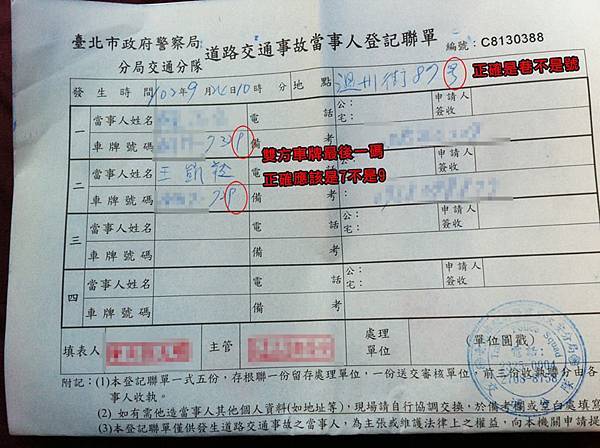 臺北市政府警察局
分局交通分隊
道路交通事故當事人登記聯單
編號：C8130388
發生時間 102年9月24日10時 分 地點 溫州街87号
正確是巷不是號
一 當事人姓名 電話 公： 宅： 申請人簽收
車牌號碼 備考
雙方車牌最後一碼
正確應該是7不是9
二 當事人姓名 王凱 電話 公： 宅： 申請人簽收
車牌號碼 備考
三 當事人姓名 電話 公： 宅： 申請人簽收
車牌號碼 備考
四 當事人姓名 電話 公： 宅： 申請人簽收
車牌號碼 備考
填表人 主管 處理單位 (單位圓戳)
2708-8158
附記：(1)本登記聯單一式五份，存根聯一份留存處理單位，一份送交審核單位，前三份收執聯分由各
事人收執。
(2) 如有需他造當事人其他個人資料(如地址等)，現場請自行協調交換，於備考欄或空白處填寫
(3)本登記聯單僅供發生道路交通事故之當事人，為主張或維護法律上之權益，向本機關申請提